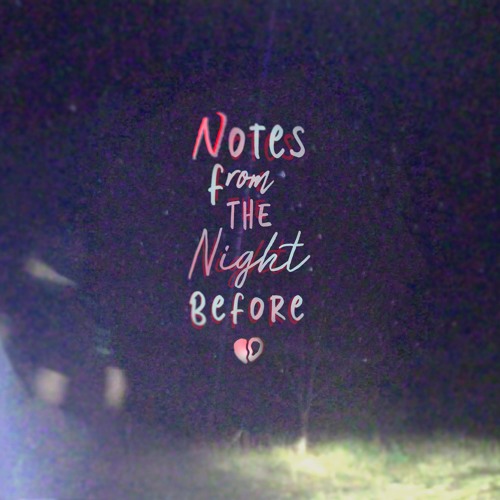 Notes
from
THE
Night
BEFORE